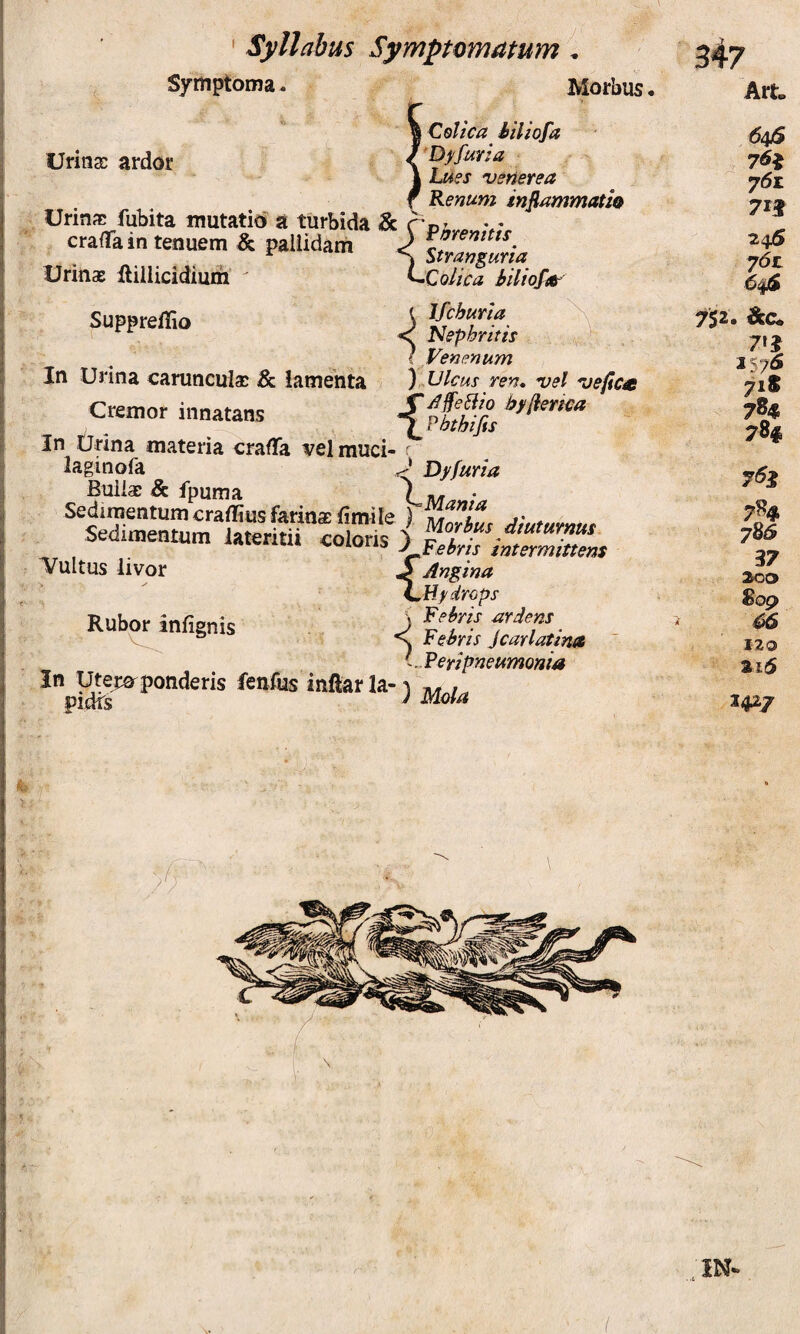 Syllabus Symptomatum . 347
Symptoma . Morbus . Art.
Colica biliosa 646
Urinæ ardor Dysuria 763
Lues venerea 761
Renum inflammatio 713
Urinæ subita mutatio a turbida &
crassa in tenuem & pallidam Phrenitis 246
Stranguria 761
Urinæ stillicidium Colica biliosa 646
Suppressio Ischuria 752. &c.
Nephritis 713
Venenum 1576
In Urina carunculæ & lamenta Ulcus ren. vel vesicæ 718
Cremor innatans Affectio hysterica 784
Phthisis 784
In Urina materia crassa vel muci-
laginosa Dysuria 763
Bullæ & spuma
Sedimentum crassius farinæ simile Mania 784
Sedimentum lateritii coloris Morbus diuturnus 786
Febris intermittens 37
Vultus livor Angina 200
Hydrops 809
Rubor insignis Febris ardens 66
Febris scarlatina 120
Peripneumonia 216
In Utero ponderis sensus instar la-
pidis Mola 1427
IN-